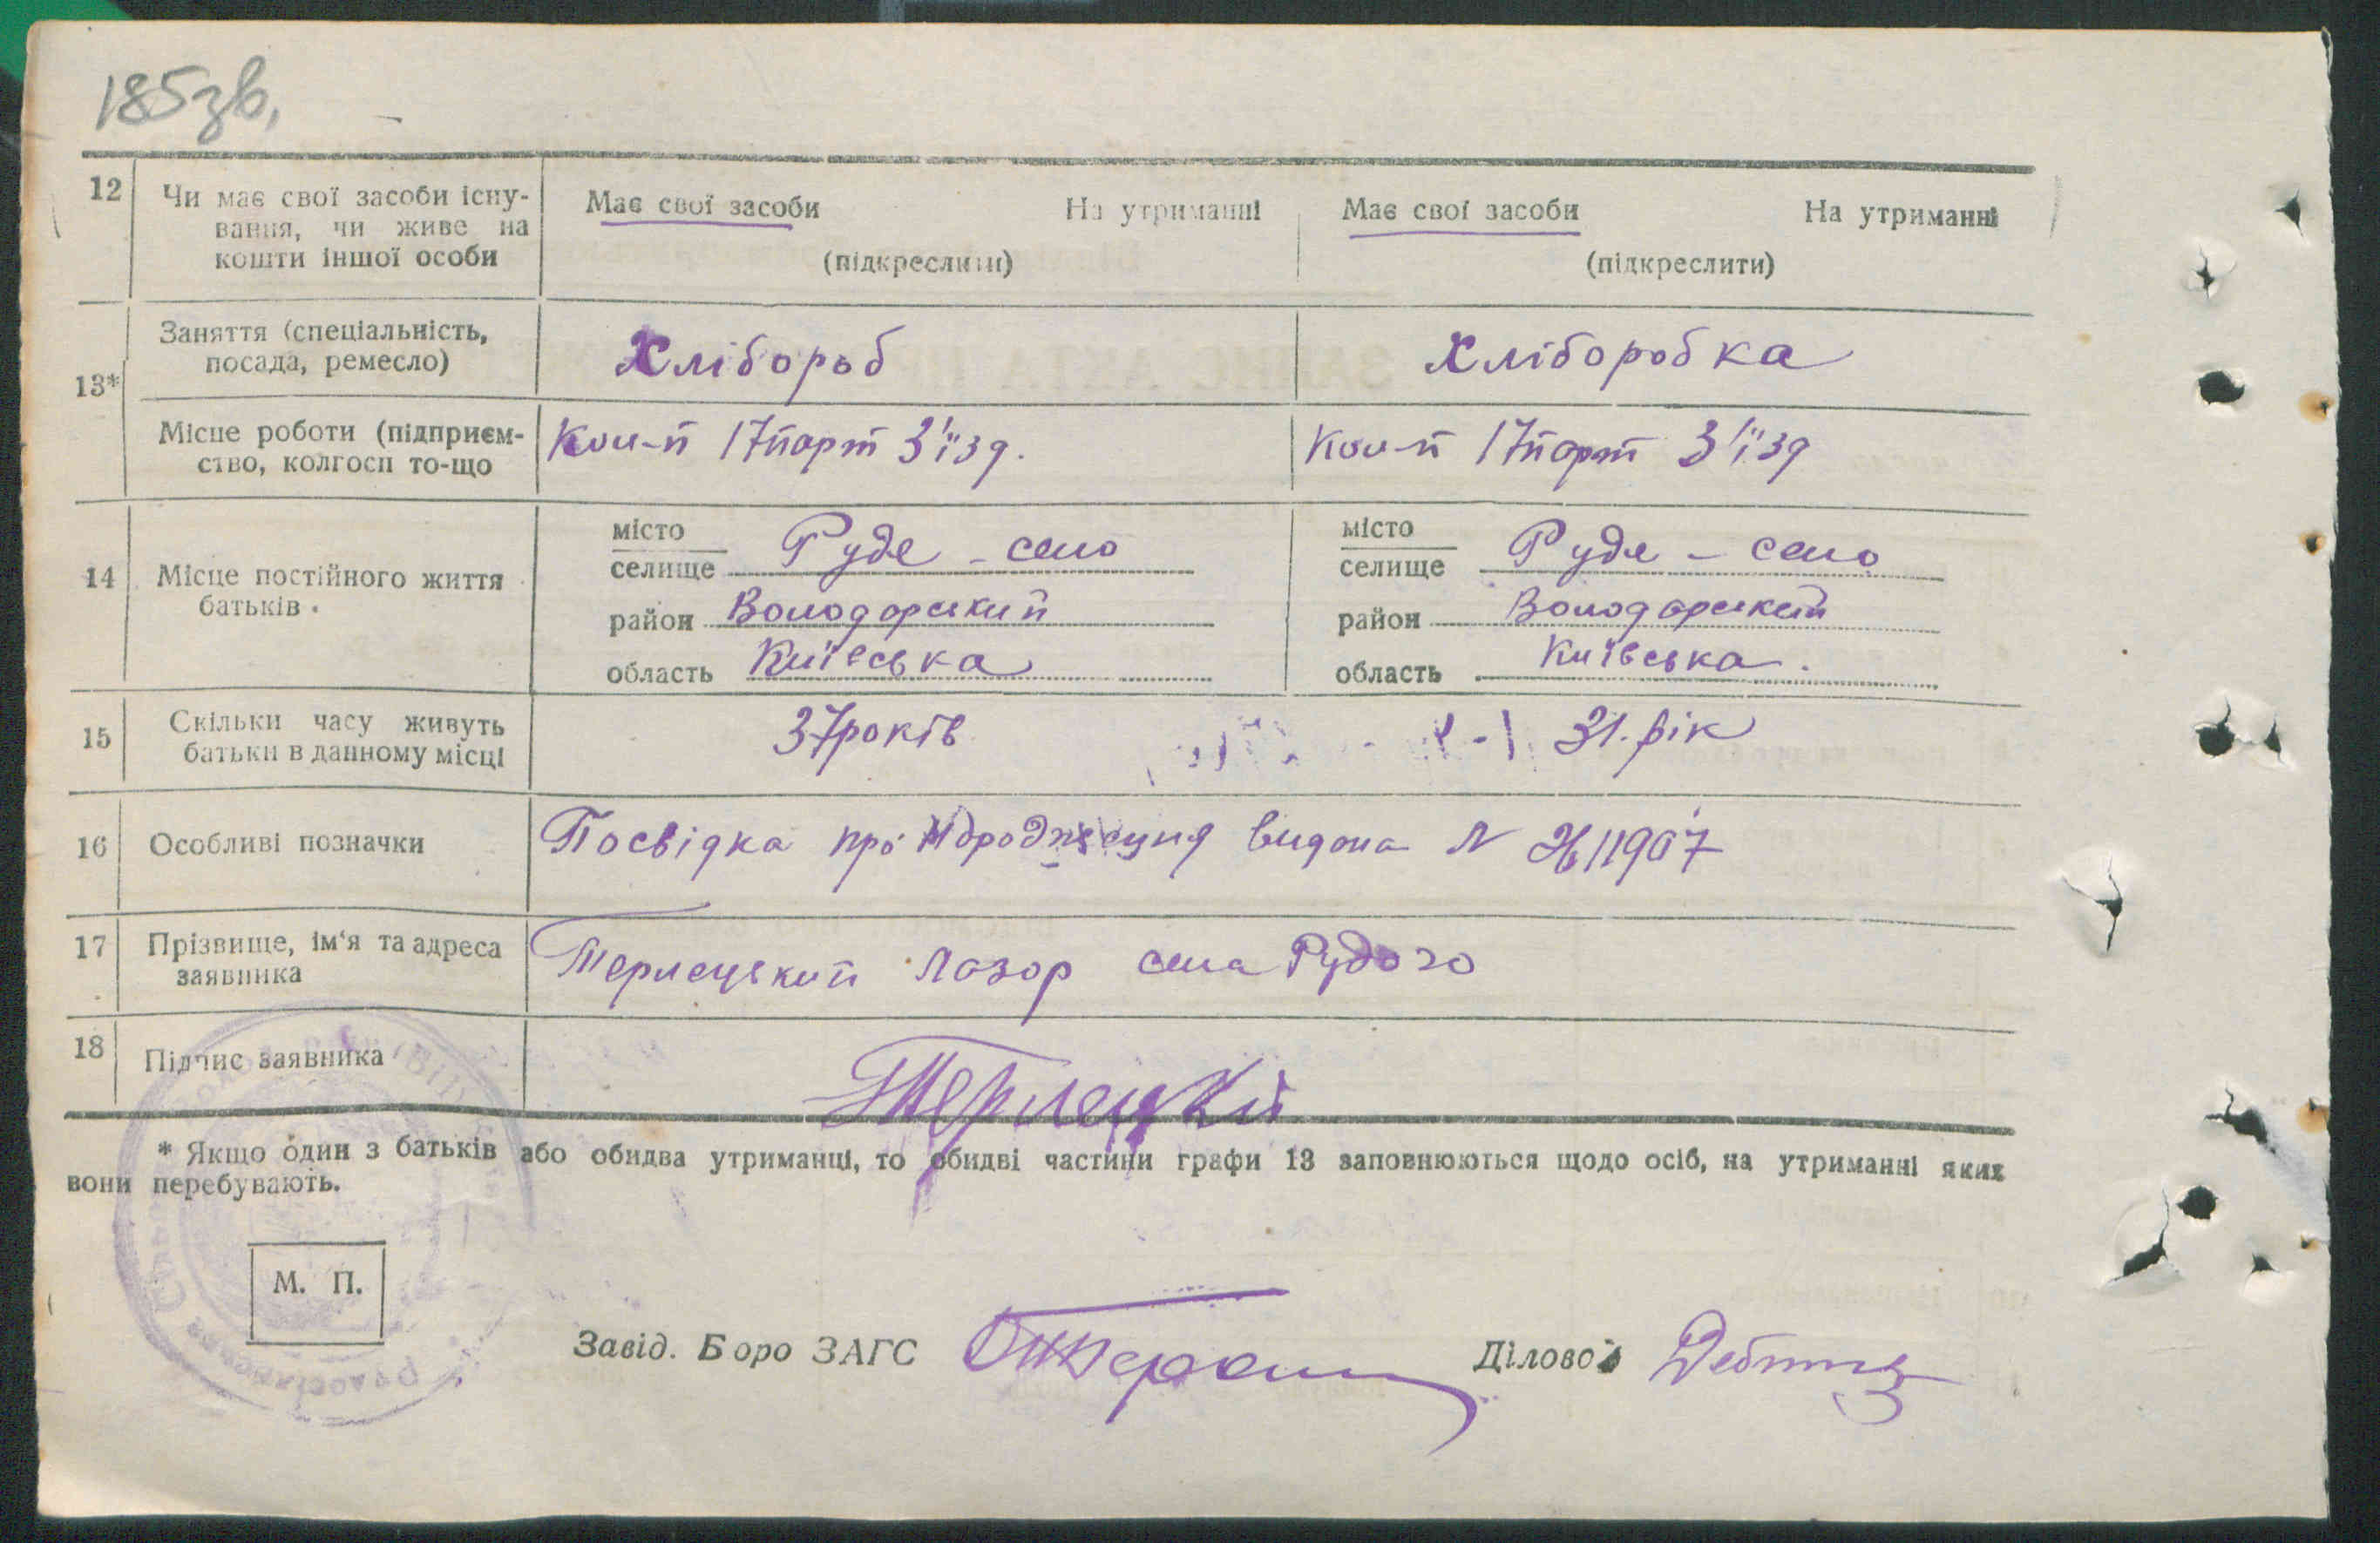 185зв,
12 Чи має свої засоби існу-
вання, чи живе на
кошти іншої особи
Має свої засоби На утриманні
(підкреслити)
Має свої засоби На утриманні
(підкреслити)
13*
Заняття (спеціальність,
посада, ремесло)
Хлібороб
Хліборобка
Місце роботи (підприєм-
ство, колгосп то-що
Кол-п 17 парт З'їзд.
Кол-п 17 парт З'їзд
14 Місце постійного життя
батьків
місто
селище Руде - село
район Володарський
область Київська
місто
селище Руде - село
район Володарський
область Київська.
15 Скільки часу живуть
батьки в данному місці
37 років
31. рік
16 Особливі позначки
Посвідка про видана № 11907
17 Прізвище, ім'я та адреса
заявника
Терлецький Лазор села Рудого
18 Підпис заявника
Терлецкий
* Якщо один з батьків або обидва утриманці, то обидві частини графи 13 заповнюються щодо осіб, на утриманні яких
вони перебувають.
М. П.
Завід. Бюро ЗАГС
Діловод